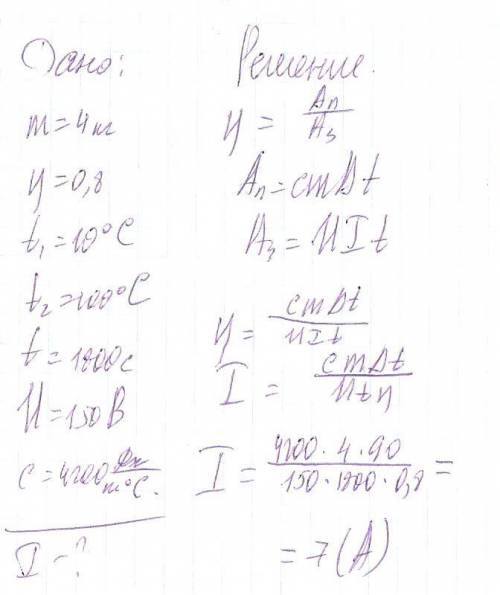 Дано:
m = 4 кг
η = 0,8
t₁ = 10°C
t₂ = 100°C
t = 1800 с
U = 150 В
c = 4200 Дж/m°C.
I - ?
Решение.
η = Aп/Aз
Aп = cmΔt
Aз = UIt
η = cmΔt/UIt
I = cmΔt/Utη
I = 4200·4·90/150·1800·0,8 =
= 7 (A)